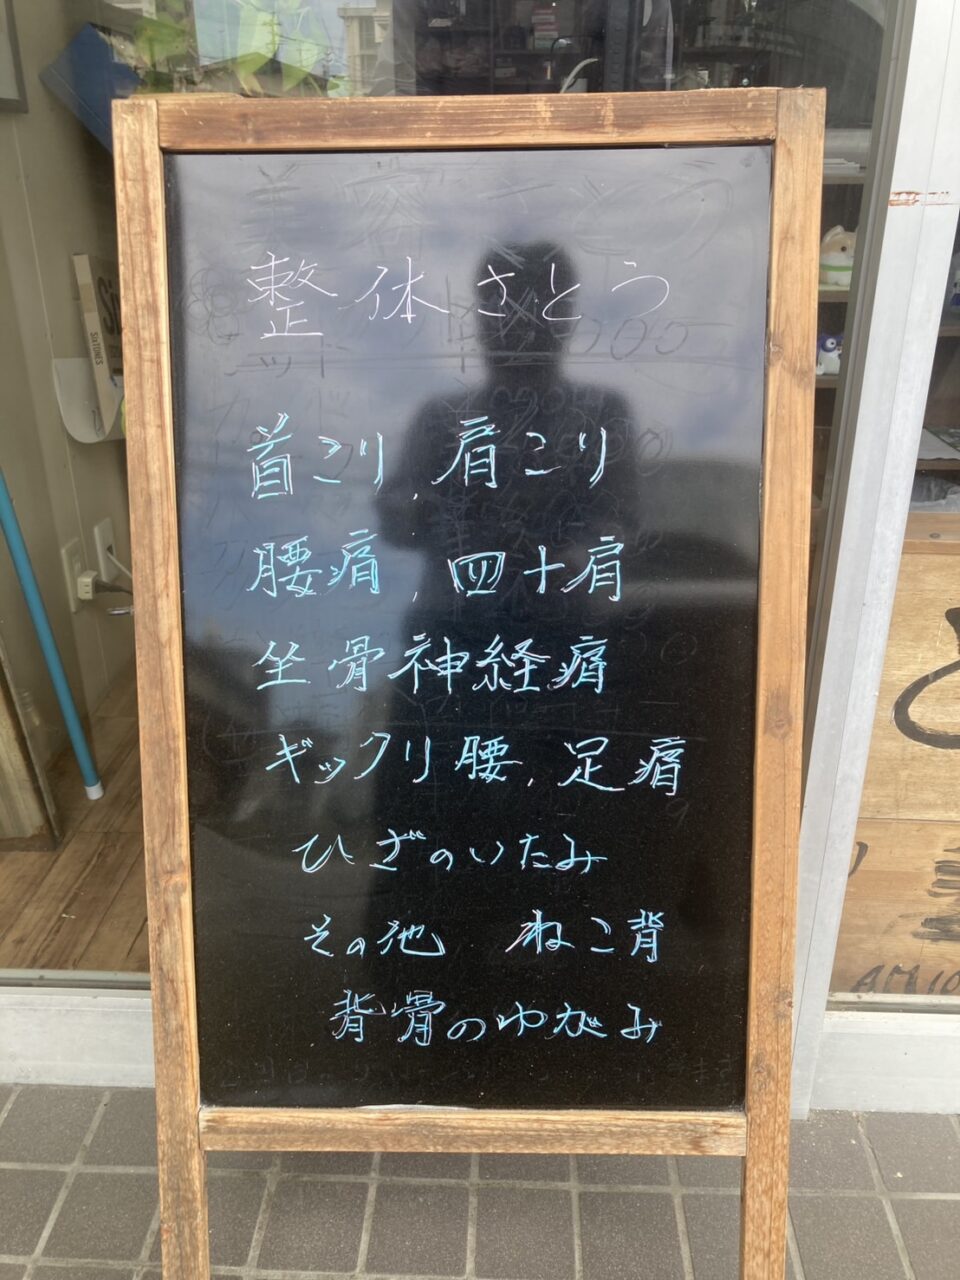 美容さとう
整体さとう
首こり、肩こり
腰痛、四十肩
坐骨神経痛
ギックリ腰、足痛
ひざのいたみ
その他 ねこ背
背骨のゆがみ
SixTONES
AM10